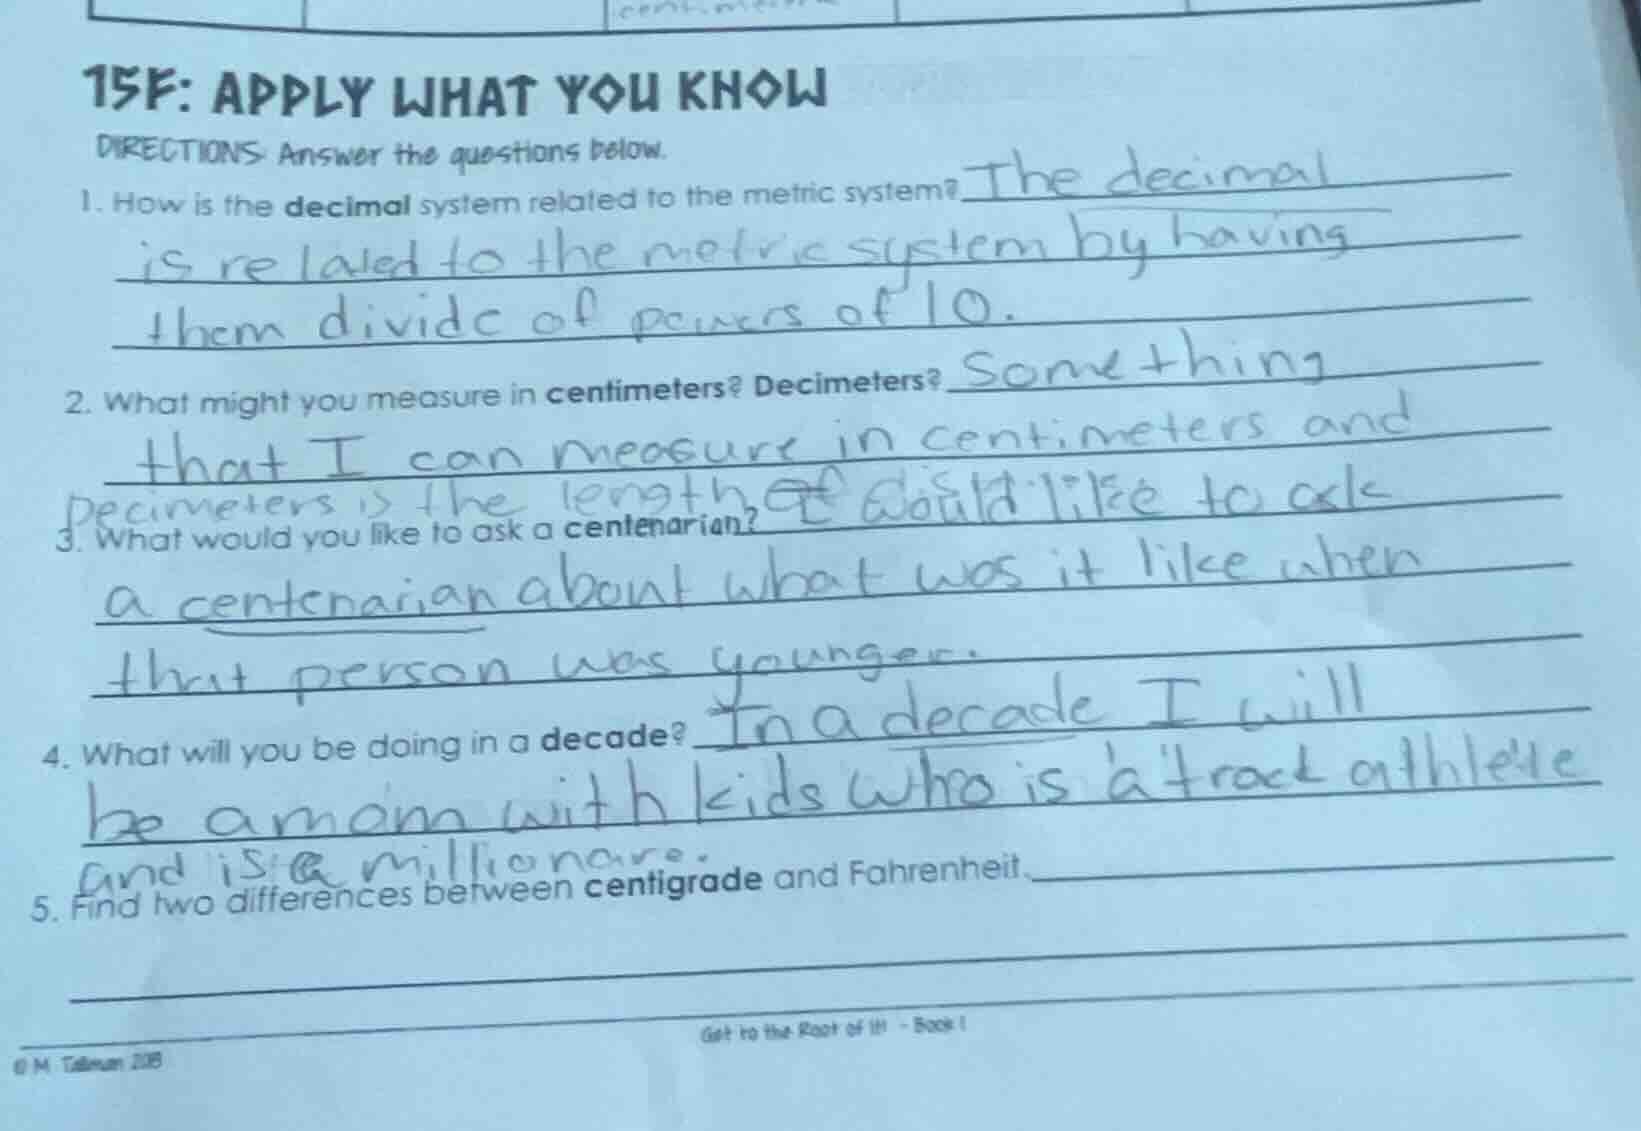 centimeters
15F: APPLY WHAT YOU KNOW
DIRECTIONS: Answer the questions below.
1. How is the decimal system related to the metric system? The decimal
is related to the metric system by having
them divide of powers of 10.
2. What might you measure in centimeters? Decimeters? Something
that I can measure in centimeters and
Decimeters is the length of
3. What would you like to ask a centenarian? I would like to ask
a centenarian about what was it like when
that person was younger.
4. What will you be doing in a decade? In a decade I will
be a mom with kids who is a track athlete
and is a millionare.
5. Find two differences between centigrade and Fahrenheit.
Get to the Root of It! - Book 1
© M. Tallman 2018